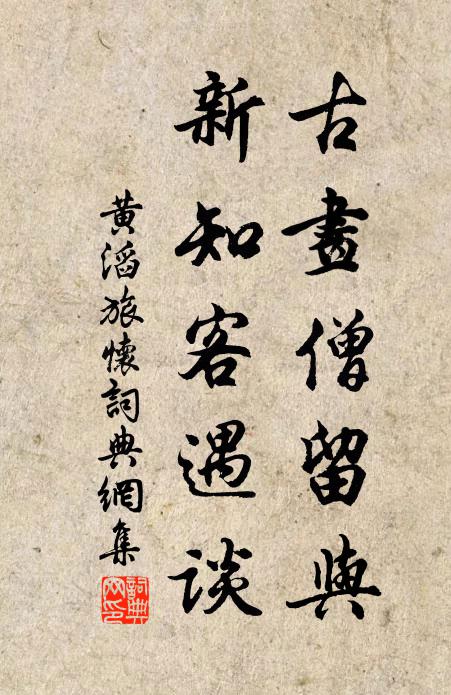 古畫僧留與
新知客遇談
黃滔旅懷詞典網集
詞典网印